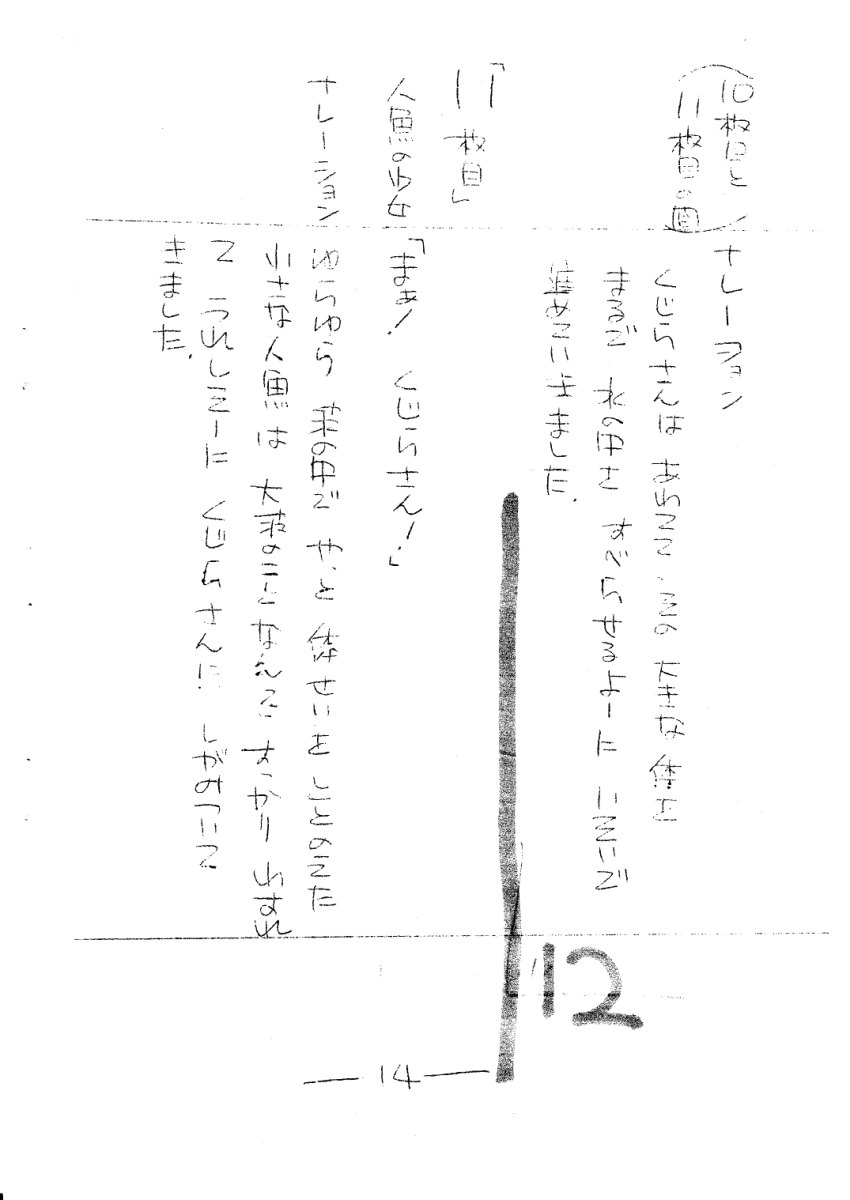 10枚目と
11枚目の画
ナレーション
くじらさんは あらここ、この 大きな 体を
まるで 水の中を すべらせるよーに いそいで
進めていきました。
「11枚目」
人魚の少女
「まぁ! くじらさん!」
ナレーション
ゆらゆら 波の中で やっと 体せいを ととのえた
小さな人魚は 大波のことなんて すっかり わすれ
て うれしそーに くじらさんに しがみついて
きました。
12
14